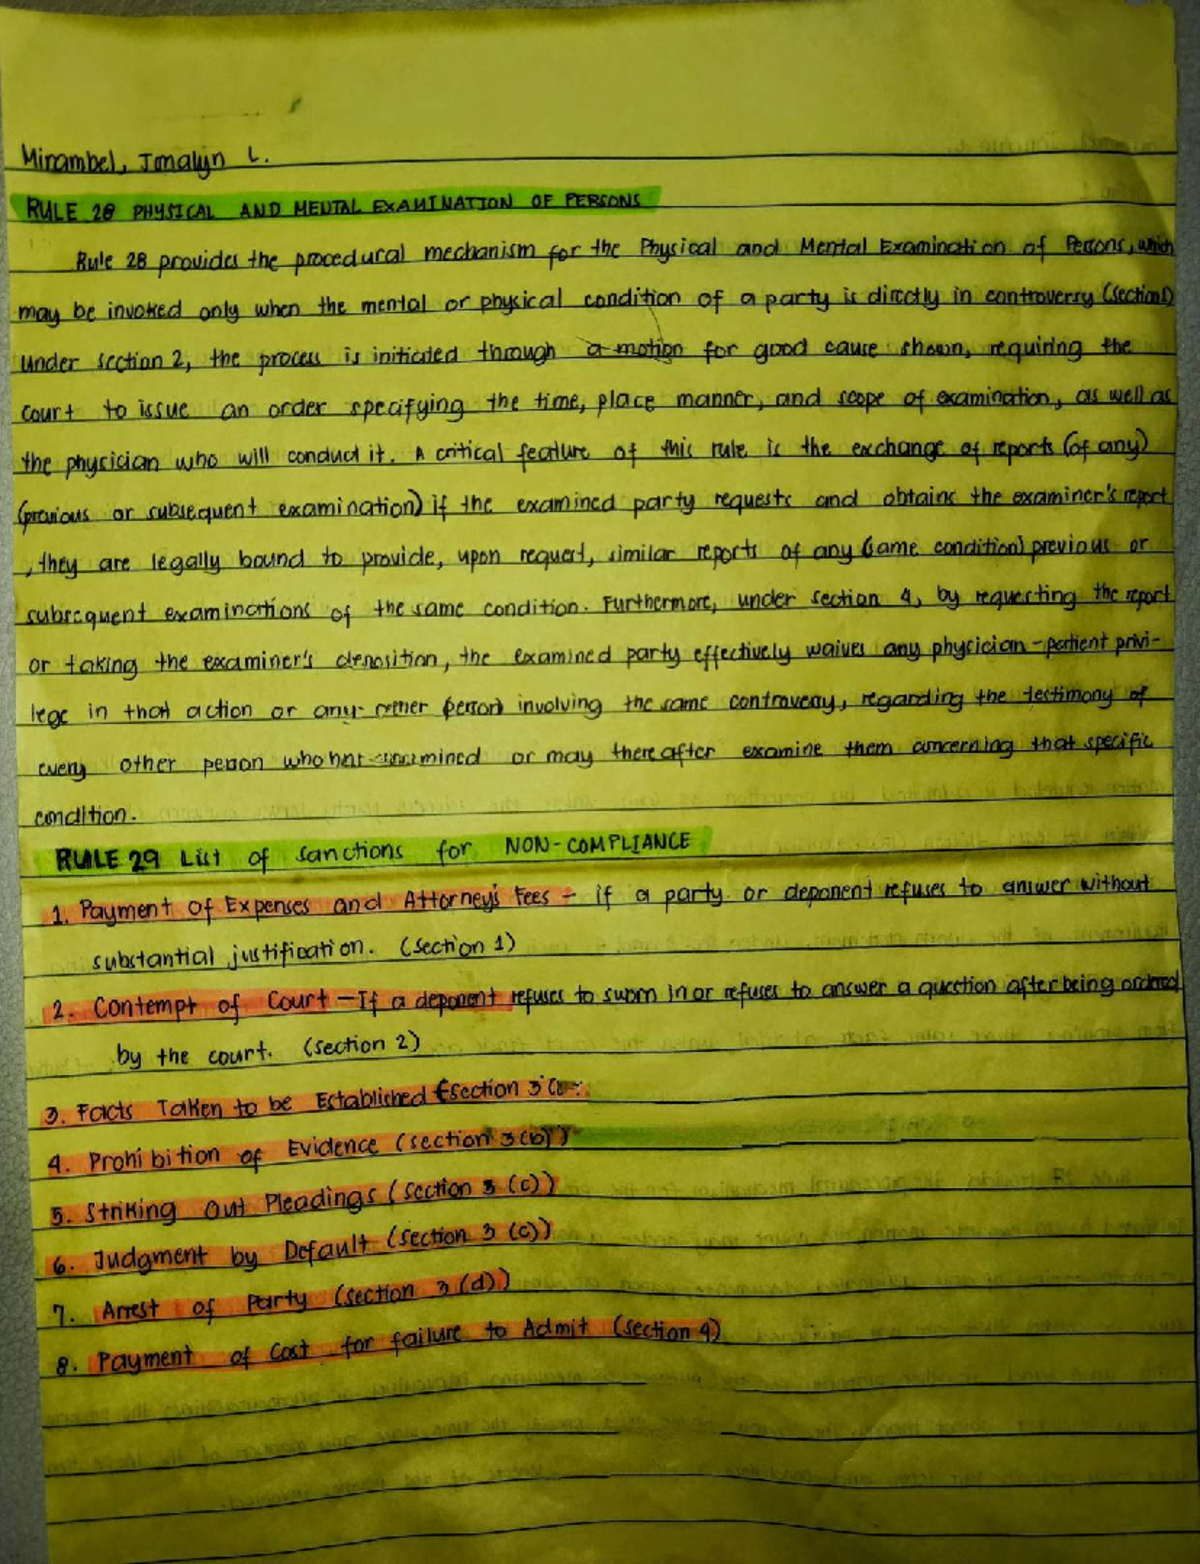 Mirambel, Jmalyn L.
RULE 28 PHYSICAL AND MENTAL EXAMINATION OF PERSONS
Rule 28 provides the procedural mechanism for the Physical and Mental Examination of Persons, which
may be invoked only when the mental or physical condition of a party is directly in controversy (section 1)
under section 2, the process is initiated through a motion for good cause shown, requiring the
court to issue an order specifying the time, place manner, and scope of examination, as well as
the physician who will conduct it. A critical feature of this rule is the exchange of reports (of any)
(previous or subsequent examination) if the examined party requests and obtains the examiner's report
, they are legally bound to provide, upon request, similar reports of any (same condition) previous or
subsequent examinations of the same condition. Furthermore, under section 4, by requesting the report
or taking the examiner's deposition, the examined party effectively waives any physician-patient privi-
lege in that action or any other (person) involving the same controversy, regarding the testimony of
every other person who has examined or may thereafter examine them concerning that specific
condition.
RULE 29 List of sanctions for NON-COMPLIANCE
1. Payment of Expenses and Attorney's Fees - if a party or deponent refuses to answer without
substantial justification. (section 1)
2. Contempt of Court - If a deponent refuses to sworn in or refuses to answer a question after being ordered
by the court. (section 2)
3. Facts Taken to be Established (section 3
4. Prohibition of Evidence (section 3(b))
5. Striking Out Pleadings (section 3 (c))
6. Judgment by Default (section 3 (c))
7. Arrest of Party (section 3 (d))
8. Payment of Cost for failure to Admit (section 4)